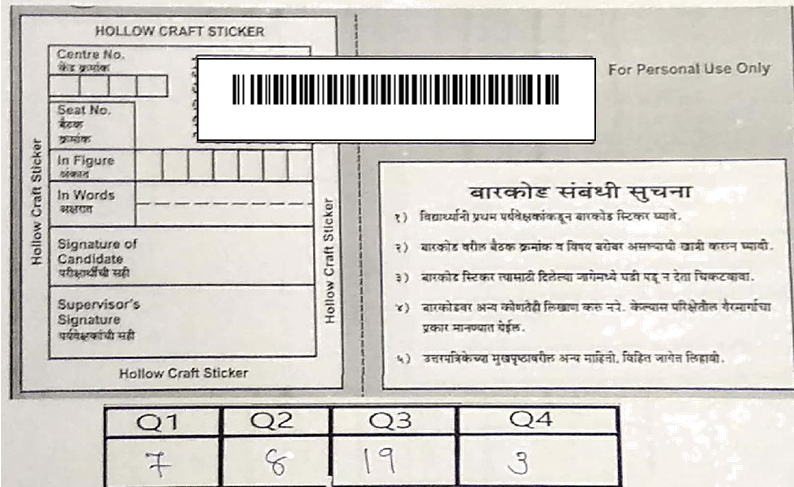 HOLLOW CRAFT STICKER
Centre No.
केंद्र क्रमांक
Seat No.
बैठक
क्रमांक
In Figure
अंकात
In Words
अक्षरात
Signature of
Candidate
परीक्षार्थीची सही
Supervisor's
Signature
पर्यवेक्षकांची सही
Hollow Craft Sticker
Hollow Craft Sticker
Hollow Craft Sticker
For Personal Use Only
बारकोड संबंधी सुचना
१) विद्यार्थ्यांनी प्रथम पर्यवेक्षकांकडून बारकोड स्टिकर घ्यावे.
२) बारकोड वरील बैठक क्रमांक व विषय बरोबर असल्याची खात्री करून घ्यावी.
३) बारकोड स्टिकर त्यासाठी दिलेल्या जागेमध्ये घडी पडू न देता चिकटवावा.
४) बारकोडवर अन्य कोणतेही लिखाण करु नये. केल्यास परिक्षेतील गैरमार्गाचा
प्रकार मानण्यात येईल.
५) उत्तरपत्रिकेच्या मुखपृष्ठावरील अन्य माहिती, विहित जागेत लिहावी.
Q1 Q2 Q3 Q4
7 8 19 3